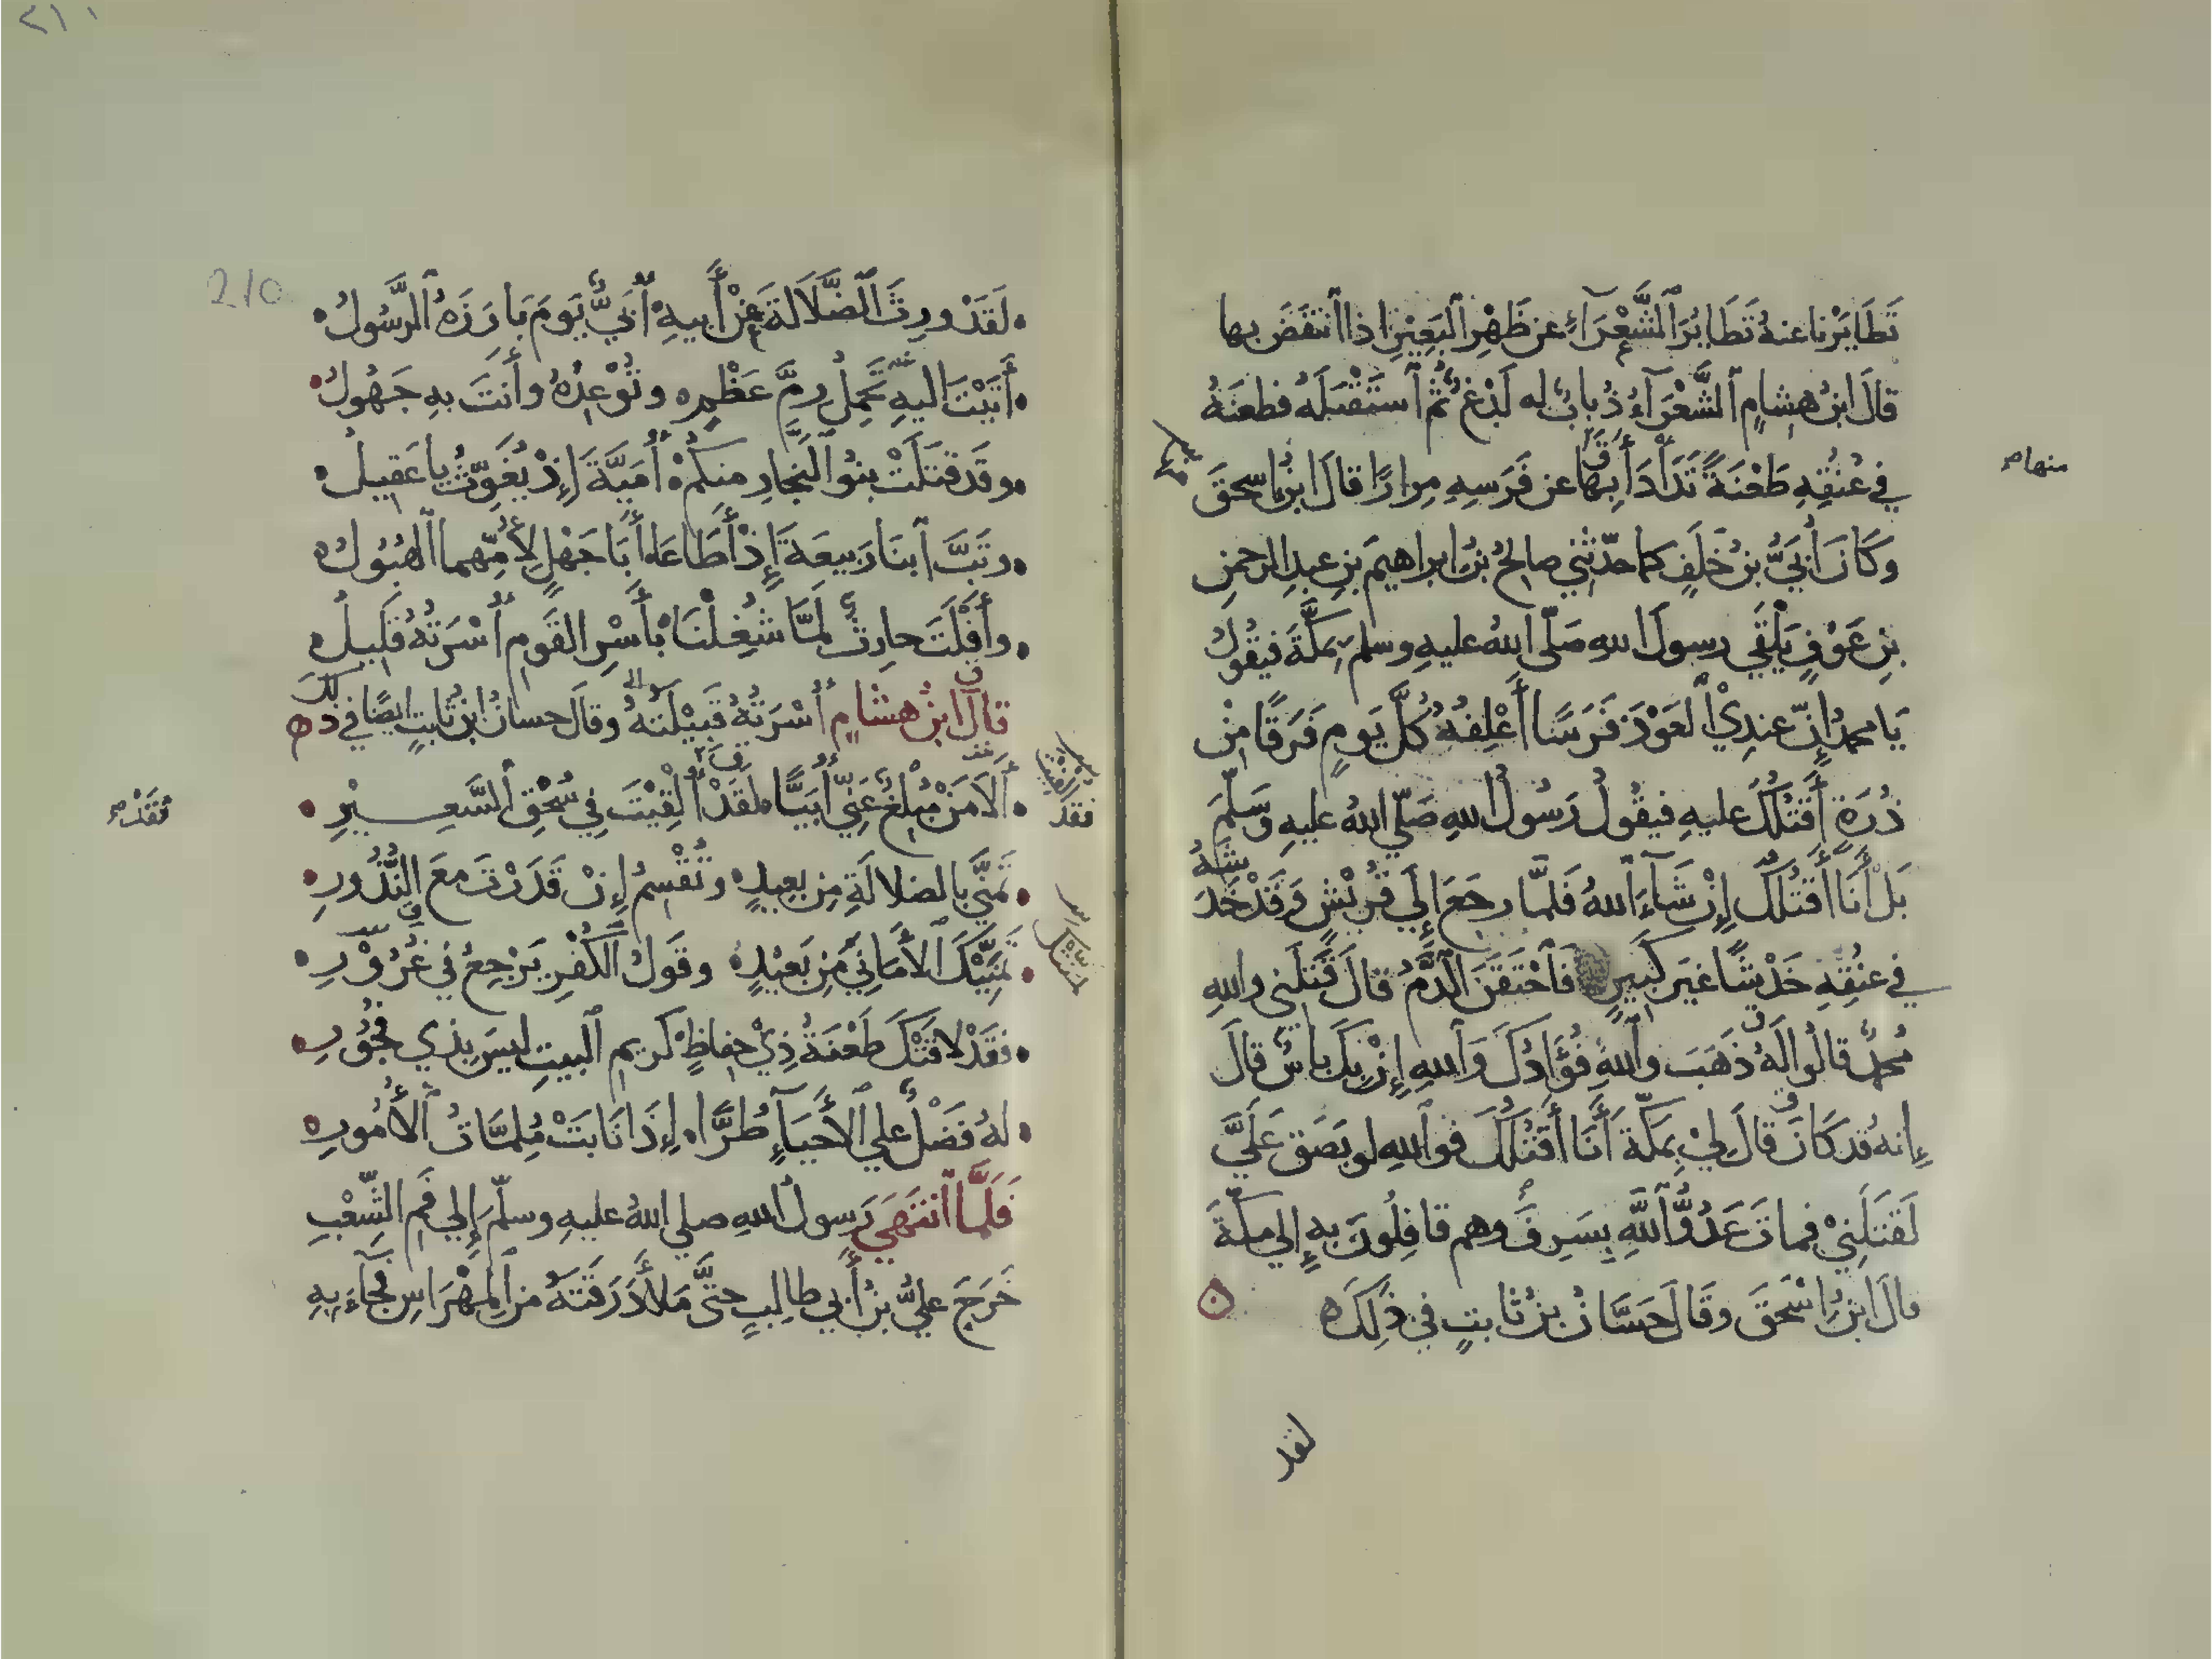 تَطَايَرْنا عنهُ تَطَايُرَ الشَّعْرَآءِ عن ظَهْرِ البَعِيْرِ اذا انتَفَضَ بها
قالَ ابنُ هشامٍ الشَّعْرَآءُ ذُبابٌ له لَدْغٌ ثُمَّ استَقْبَلَهُ فطعنَهُ
في عُنُقِهِ طَعْنَةً تَدَأْدَأَ بِهَا عن فَرَسِهِ مِرارًا قالَ ابنُ إسحقَ
منها م
وَكَانَ أُبَيُّ بنُ خَلَفٍ كما حدّثني صالحُ بنُ ابراهيمَ بنِ عبدِ الرحمنِ
بنِ عَوْفٍ يَلْقَي رسولَ اللهِ صَلّي اللهُ عليهِ وسلم بمَكَّةَ فيقُولُ
يَا محمدُ إِنّ عندِيْ العَوْذَ فَرَسًا أَعْلِفُهُ كُلَّ يَومٍ فَرَقًا مِنْ
ذُرَةٍ أَقتُلُكَ عليهِ فيقُولُ رَسُولُ اللهِ صَلّي اللهُ عليهِ وَسَلّمَ
بَلْ أَنَا أَقتُلُكَ إِنْ شَآءَ اللهُ فَلمَّا رجَعَ إِلَي قُرَيْشٍ وَقَدْ خَدَشَهُ
في عنُقِهِ خَدْشًا غيرَ كَبيرٍ فاَحْتَقَنَ الدَّمُ قالَ قَتَلَني واللهِ
مُحمدٌ قالُوا لَهُ ذَهَبَ واللهِ فُؤَادُكَ وَاللهِ إِنْ بِكَ باسٌ قالَ
إِنهُ قد كَانَ قالَ لِيْ بِمَكّةَ أَنَا أَقتُلُكَ فواللهِ لو بَصَقَ عَلَيَّ
لَقَتَلَنِيْ فماتَ عَدُوُّ اللَّهِ بِسَرِفَ وهم قافِلُونَ بهِ إِلي مكّةَ
قالَ ابنُ إِسْحَقَ وقَالَ حَسَّانُ بنُ ثَابتٍ في ذَلِكَ ه
لقد
٢١١
210
لَقَدْ ورِثَ الضَّلَالَةَ عَنْ أَبيهِ أُبَيٌّ يَومَ بَارَزَهُ الرَّسُولُ
أَتَيْتَ اليهِ تَحمِلُ رِمَّ عَظْمٍ ه وتُوْعِدُهُ وأَنتَ بهِ جَهُولُ
وقَد قتَلَتْ بنُو النَّجارِ منكمْ ه أُمَيَّةَ إِذْ يُغَوِّثُ يا عَقِيلُ
وتَبَّ ابنَا رَبِيعَةَ إِذْ أَطَاعَا ه أَبَا جَهْلٍ لِأُمِّهِما الهُبُولُ
وأَفْلَتَ حارِثٌ لمَّا شُغِلْنَا ه بأَسْرِ القَومِ أُسْرَتُهُ قَلِيلُ
قالَ ابنُ هشامٍ أُسْرَتُهُ قَبِيْلَتُهُ وقالَ حسانُ ابنُ ثابتٍ ايضًا في ذلكَ ه
أَلَا مَنْ مُبْلِغٌ عَنِّي أُبَيًّا ه لقَدْ أُلْقِيْتَ فِي سُحْقِ السَّعِيْرِ
فقد
فَقَدْ م
تَمَنَّي بالضلالَةِ مِن بعيدٍ ه وتُقْسِمُ إِنْ قَدَرْتَ معَ النُّذُورِ
تَمَنِّيْكَ الأَمَانِيَ مِن بَعِيْدٍ ه وقَولُ الكُفْرِ يَرْجِعُ في غُرُوْرِ
فقَدْ لاقَتْكَ طَعْنَةُ ذِيْ حِفاظٍ كريمِ البيتِ ليسَ بذي فجُوْرِ
لهُ فَضْلٌ علي الأَحيَآءِ طُرًّا ه إِذَا نَابَتْ مُلِمَّاتُ الأُمُورِ
فَلَمَّا انتَهَي رَسولُ اللهِ صلي اللهُ عليهِ وسلّمَ إِلي فَمِ الشِّعْبِ
خَرَجَ عليُّ بنُ أَبي طالبٍ حتَّي مَلأَ دَرَقَتَهُ منَ المِهْرَاسِ فجآءَ بِهِ